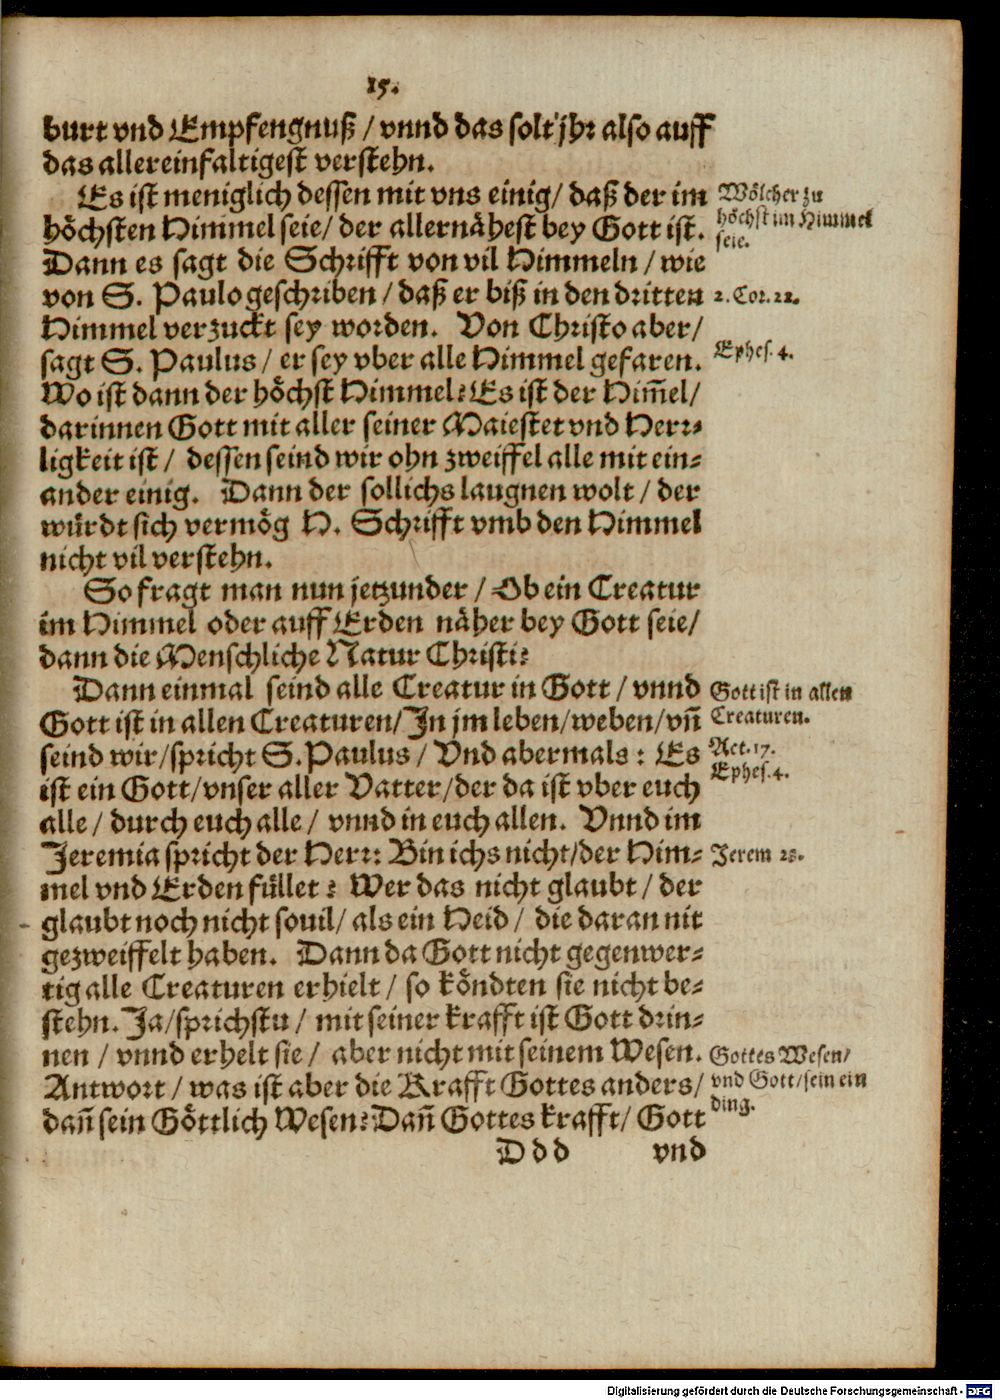 15.
burt vnd Empfengnuß / vnnd das solt jhr also auff
das allereinfaltigest verstehn.
Es ist meniglich dessen mit vns einig / daß der im
höchsten Himmel seie / der allernähest bey Gott ist.
Wölcher zu
höchst im Himmel
seie.
Dann es sagt die Schrifft von vil Himmeln / wie
von S. Paulo geschriben / daß er biß in den dritten
2. Cor. 12.
Himmel verzuckt sey worden. Von Christo aber /
sagt S. Paulus / er sey vber alle Himmel gefaren.
Ephes. 4.
Wo ist dann der höchst Himmel? Es ist der Him̃el /
darinnen Gott mit aller seiner Maiestet vnd Herr-
ligkeit ist / dessen seind wir ohn zweiffel alle mit ein-
ander einig. Dann der sollichs laugnen wolt / der
würdt sich vermög H. Schrifft vmb den Himmel
nicht vil verstehn.
So fragt man nun jetzunder / Ob ein Creatur
im Himmel oder auff Erden näher bey Gott seie /
dann die Menschliche Natur Christi?
Dann einmal seind alle Creatur in Gott / vnnd
Gott ist in allen Creaturen / In jm leben / weben / vñ
Gott ist in allen
Creaturen.
seind wir / spricht S. Paulus / Vnd abermals : Es
Act. 17.
ist ein Gott / vnser aller Vatter / der da ist vber euch
Ephes. 4.
alle / durch euch alle / vnnd in euch allen. Vnnd im
Jeremia spricht der Herr: Bin ichs nicht / der Him-
Jerem 23.
mel vnd Erden füllet ? Wer das nicht glaubt / der
glaubt noch nicht souil / als ein Heid / die daran nit
gezweiffelt haben. Dann da Gott nicht gegenwer-
tig alle Creaturen erhielt / so köndten sie nicht be-
stehn. Ja / sprichstu / mit seiner krafft ist Gott drin-
nen / vnnd erhelt sie / aber nicht mit seinem Wesen.
Antwort / was ist aber die Krafft Gottes anders /
dañ sein Göttlich Wesen? Dañ Gottes krafft / Gott
Gottes Wesen /
vnd Gott / sein ein
ding.
D d d vnd
Digitalisierung gefördert durch die Deutsche Forschungsgemeinschaft - DFG